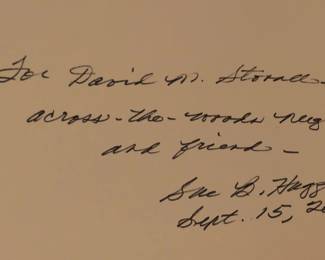 For David M. Stovall -
across-the-woods neig
and friend -
Sue B. Hugg
Sept. 15, 20